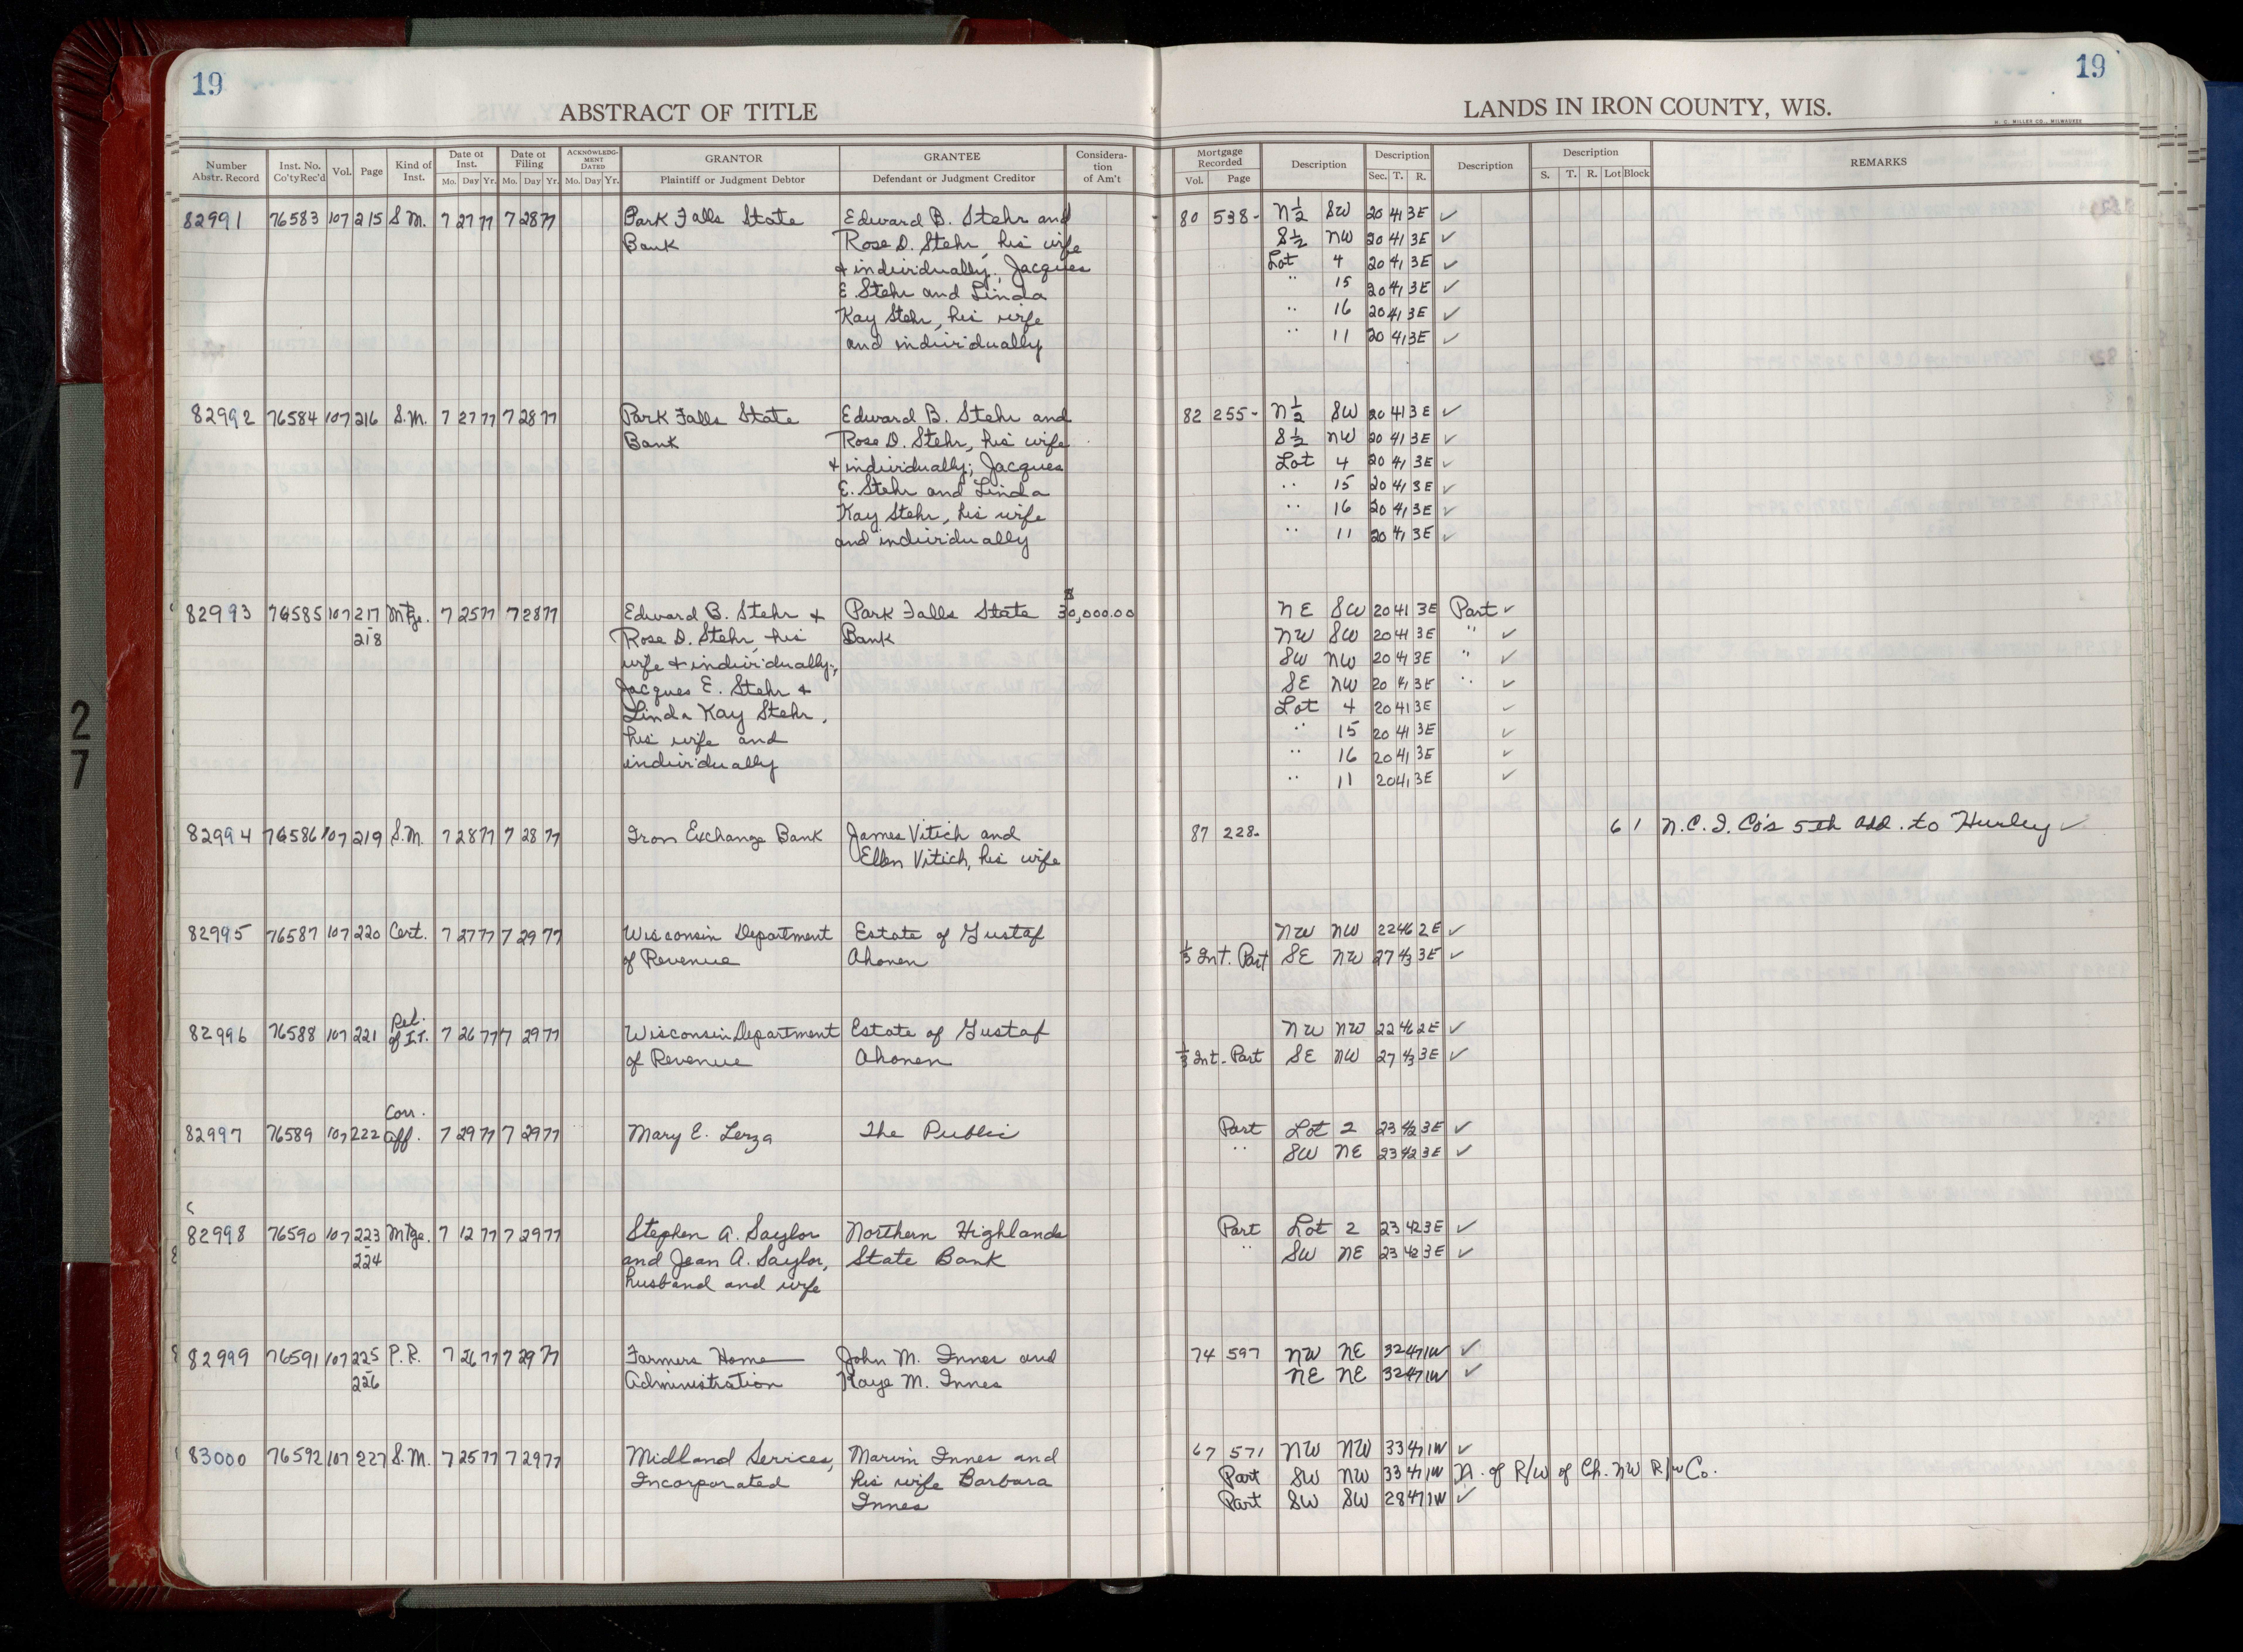 19
19
ABSTRACT OF TITLE
LANDS IN IRON COUNTY, WIS.
H. C. MILLER CO., MILWAUKEE
Number Abstr. Record Inst. No. Co'ty Rec'd Vol. Page Kind of Inst. Date of Inst. Mo. Day Yr. Date of Filing Mo. Day Yr. ACKNOWLEDGMENT DATED Mo. Day Yr. GRANTOR Plaintiff or Judgment Debtor GRANTEE Defendant or Judgment Creditor Consideration of Am't
Mortgage Recorded Vol. Page Description Description Sec. T. R. Description Description S. T. R. Lot Block REMARKS
82991 76583 107 215 S.M. 7 27 77 7 28 77 Park Falls State Edward B. Stehr and 80 538- N½ SW 20 41 3E ✓
Bank Rose D. Stehr, his wife S½ NW 20 41 3E ✓
+ individually; Jacques Lot 4 20 41 3E ✓
E. Stehr and Linda " 15 20 41 3E ✓
Kay Stehr, his wife " 16 20 41 3E ✓
and individually " 11 20 41 3E ✓
82992 76584 107 216 S.M. 7 27 77 7 28 77 Park Falls State Edward B. Stehr and 82 255- N½ SW 20 41 3E ✓
Bank Rose D. Stehr, his wife S½ NW 20 41 3E ✓
+ individually; Jacques Lot 4 20 41 3E ✓
E. Stehr and Linda " 15 20 41 3E ✓
Kay Stehr, his wife " 16 20 41 3E ✓
and individually " 11 20 41 3E ✓
82993 76585 107 217 Mtge. 7 25 77 7 28 77 Edward B. Stehr + Park Falls State $30,000.00 NE SW 20 41 3E Part ✓
- 218 Rose D. Stehr, his Bank NW SW 20 41 3E " ✓
wife + individually; SW NW 20 41 3E " ✓
Jacques E. Stehr + SE NW 20 41 3E " ✓
Linda Kay Stehr, Lot 4 20 41 3E ✓
his wife and " 15 20 41 3E ✓
individually " 16 20 41 3E ✓
" 11 20 41 3E ✓
82994 76586 107 219 S.M. 7 28 77 7 28 77 Iron Exchange Bank James Vitich and 87 228- 6 1 N.C.I. Co's 5th Add. to Hurley ✓
Ellen Vitich, his wife
82995 76587 107 220 Cert. 7 27 77 7 29 77 Wisconsin Department Estate of Gustaf NW NW 22 46 2E ✓
of Revenue Ahonen ⅓ Int. Part SE NW 27 43 3E ✓
82996 76588 107 221 Rel. of I.T. 7 26 77 7 29 77 Wisconsin Department Estate of Gustaf NW NW 22 46 2E ✓
of Revenue Ahonen ⅓ Int. Part SE NW 27 43 3E ✓
82997 76589 107 222 Corr. Aff. 7 29 77 7 29 77 Mary E. Lerza The Public Part Lot 2 23 42 3E ✓
" SW NE 23 42 3E ✓
82998 76590 107 223 Mtge. 7 12 77 7 29 77 Stephen A. Saylor Northern Highlands Part Lot 2 23 42 3E ✓
- 224 and Jean A. Saylor, State Bank " SW NE 23 42 3E ✓
husband and wife
82999 76591 107 225 P.R. 7 26 77 7 29 77 Farmers Home John M. Innes and 74 597 NW NE 32 47 1W ✓
- 226 Administration Kaye M. Innes NE NE 32 47 1W ✓
83000 76592 107 227 S.M. 7 25 77 7 29 77 Midland Services, Marvin Innes and 67 571 NW NW 33 47 1W ✓
Incorporated his wife Barbara Part SW NW 33 47 1W N. of R/W of Ch. NW R/w Co.
Innes Part SW SW 28 47 1W ✓
27